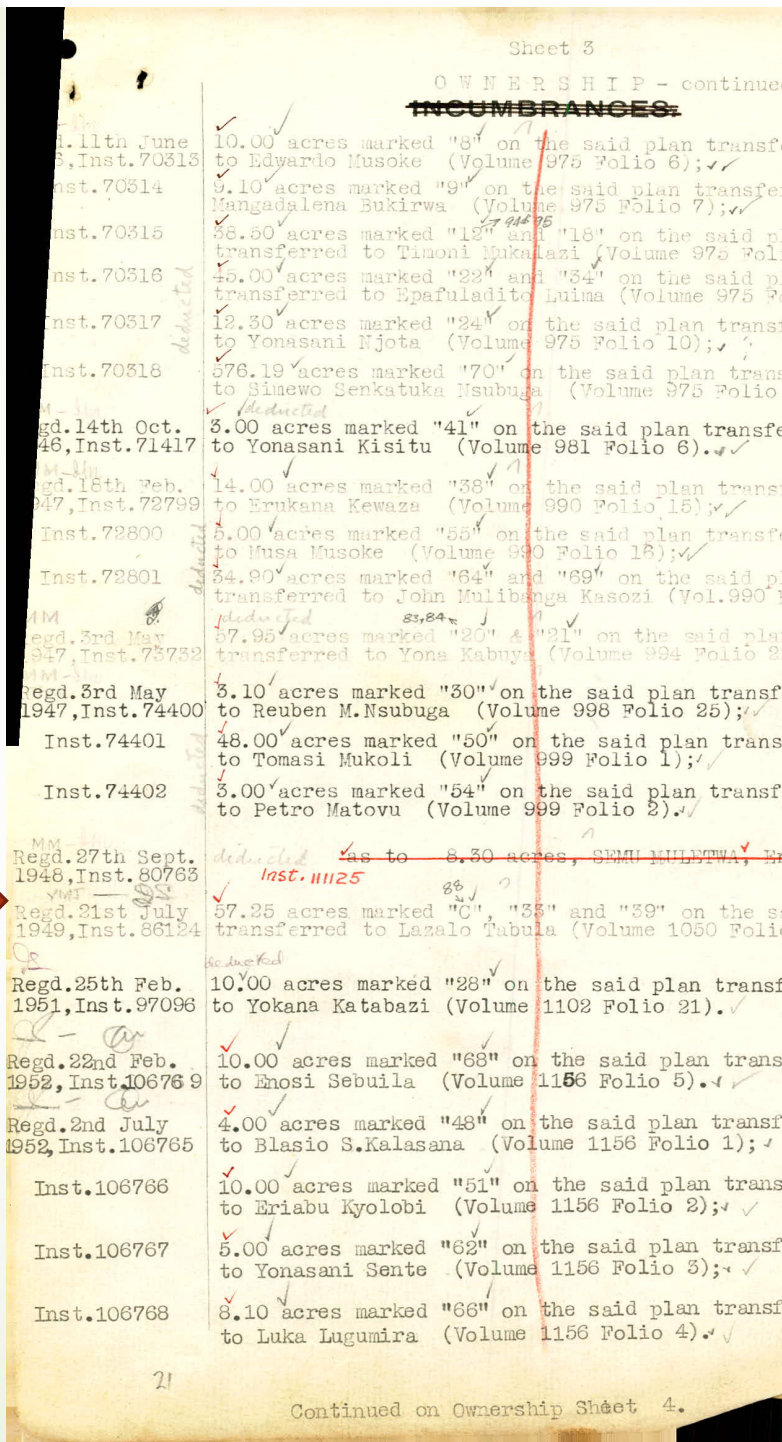 Sheet 3
OWNERSHIP - continue
INCUMBRANCES.
d. 11th June 10.00 acres marked "8" on the said plan transf
6,Inst.70313 to Edwardo Musoke (Volume 975 Folio 6);
nst.70314 9.10 acres marked "9" on the said plan transfe
Mangadalena Bukirwa (Volume 975 Folio 7);
94 & 95
nst.70315 38.50 acres marked "12" and "18" on the said p
transferred to Timoni Mukalazi (Volume 975 Fol
nst.70316 45.00 acres marked "22" and "34" on the said p
deducted
transferred to Epafuladito Luima (Volume 975 F
Inst.70317 12.30 acres marked "24" on the said plan transf
to Yonasani Njota (Volume 975 Folio 10);
Inst.70318 576.19 acres marked "70" on the said plan trans
to Simewo Senkatuka Nsubuga (Volume 975 Folio
deducted
gd.14th Oct. 3.00 acres marked "41" on the said plan transfe
46,Inst.71417 to Yonasani Kisitu (Volume 981 Folio 6).
gd.18th Feb. 14.00 acres marked "38" on the said plan trans
947,Inst.72799 to Erukana Kewaza (Volume 990 Folio 15);
Inst.72800 5.00 acres marked "55" on the said plan transf
deducted
to Musa Musoke (Volume 990 Folio 16);
Inst.72801 34.90 acres marked "64" and "69" on the said p
transferred to John Mulibanga Kasozi (Vol.990
MM deducted 83,84
egd.3rd May 57.95 acres marked "20" & "21" on the said pla
947,Inst.73732 transferred to Yona Kabuya (Volume 994 Folio 2
Regd.3rd May 3.10 acres marked "30" on the said plan transf
1947,Inst.74400 to Reuben M.Nsubuga (Volume 998 Folio 25);
Inst.74401 48.00 acres marked "50" on the said plan trans
deducted
to Tomasi Mukoli (Volume 999 Folio 1);
Inst.74402 3.00 acres marked "54" on the said plan transf
to Petro Matovu (Volume 999 Folio 2).
MM
Regd.27th Sept. deducted as to 8.30 acres, SEMU MULETWA, Er
1948,Inst.80763 Inst. 111125
88
Regd.21st July 57.25 acres marked "C", "33" and "39" on the s
1949,Inst.86124 transferred to Lazalo Tabula (Volume 1050 Foli
deducted
Regd.25th Feb. 10.00 acres marked "28" on the said plan transf
1951,Inst.97096 to Yokana Katabazi (Volume 1102 Folio 21).
Regd.22nd Feb. 10.00 acres marked "68" on the said plan trans
1952,Inst.106769 to Enosi Sebuila (Volume 1156 Folio 5).
Regd.2nd July 4.00 acres marked "48" on the said plan transf
1952,Inst.106765 to Blasio S.Kalasana (Volume 1156 Folio 1);
Inst.106766 10.00 acres marked "51" on the said plan trans
to Eriabu Kyolobi (Volume 1156 Folio 2);
Inst.106767 5.00 acres marked "62" on the said plan transf
to Yonasani Sente (Volume 1156 Folio 3);
Inst.106768 8.10 acres marked "66" on the said plan transf
to Luka Lugumira (Volume 1156 Folio 4).
21
Continued on Ownership Sheet 4.